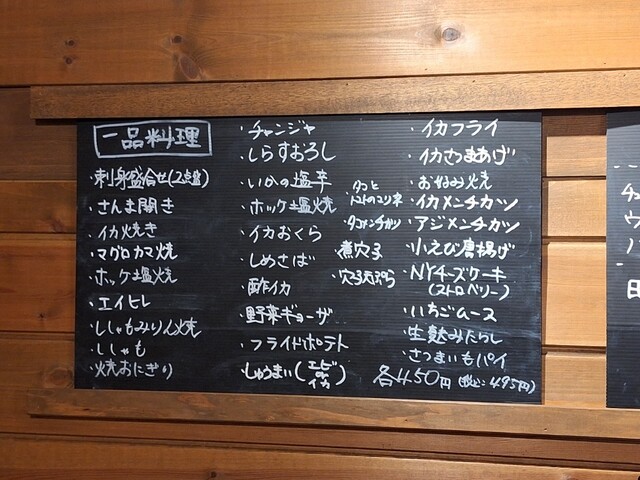 一品料理
・刺身盛合せ(2点盛)
・さんま開き
・イカ焼き
・マグロカマ焼
・ホッケ塩焼
・エイヒレ
・ししゃもみりん焼
・ししゃも
・焼おにぎり
・チャンジャ
・しらすおろし
・いかの塩辛
・ホッケ塩焼
・イカおくら
・しめさば
・酢イカ
・野菜ギョーザ
・フライドポテト
・しゅうまい(エビ or イカ)
・タコと
トマトのマリネ
・タコメンチカツ
・煮穴子
・穴子天ぷら
・イカフライ
・イカさつまあげ
・お好み焼
・イカメンチカツ
・アジメンチカツ
・小えび唐揚げ
・NYチーズケーキ
(ストロベリー)
・いちごムース
・生麩みたらし
・さつまいもパイ
各450円(税込:495円)